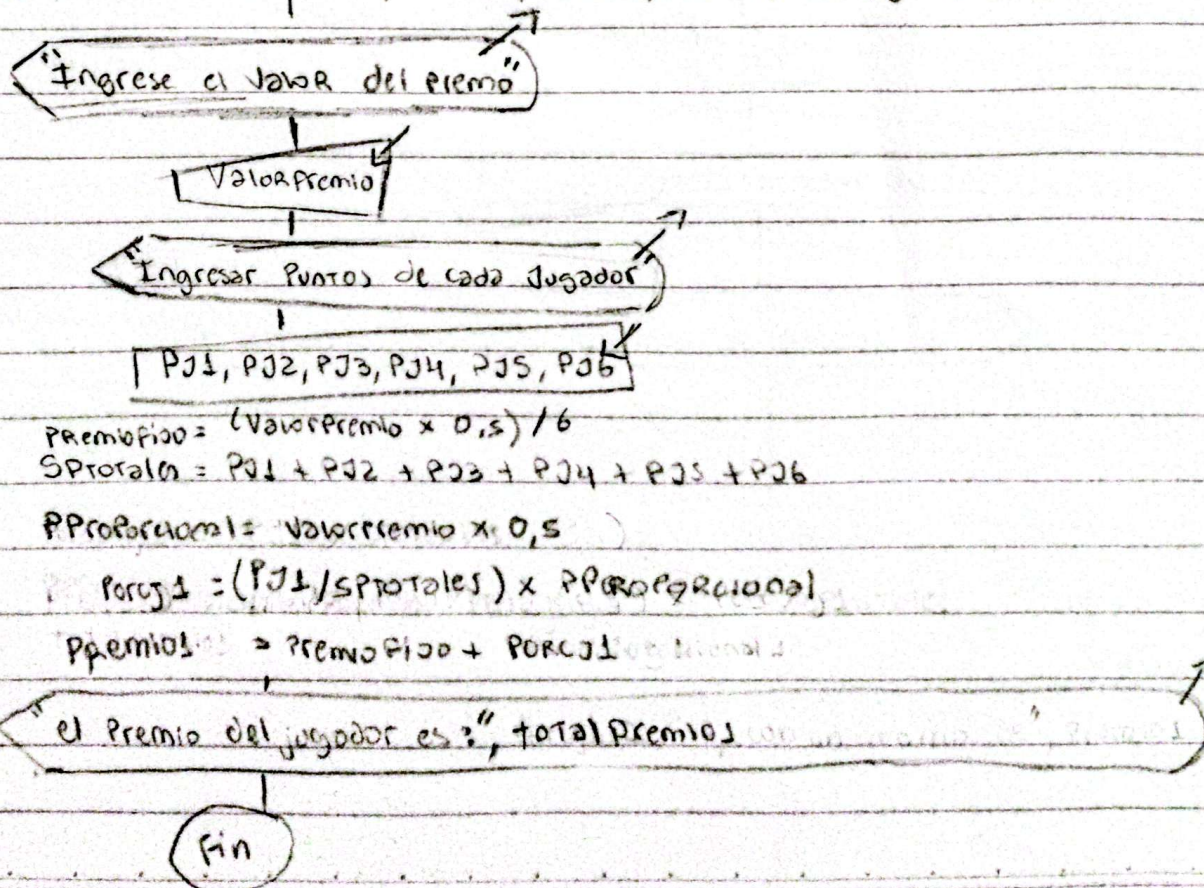 "Ingrese el valor del premio"
ValorPremio
"Ingresar Puntos de cada Jugador"
PJ1, PJ2, PJ3, PJ4, PJ5, PJ6
Premiofijo = (Valorpremio x 0,5) / 6
SPTotales = PJ1 + PJ2 + PJ3 + PJ4 + PJ5 + PJ6
PProporcional = Valorpremio x 0,5
PorcJ1 = (PJ1/SPTotales) x PProporcional
Premio1 = Premiofijo + PorcJ1
"el Premio del jugador es:", total Premio1
Fin